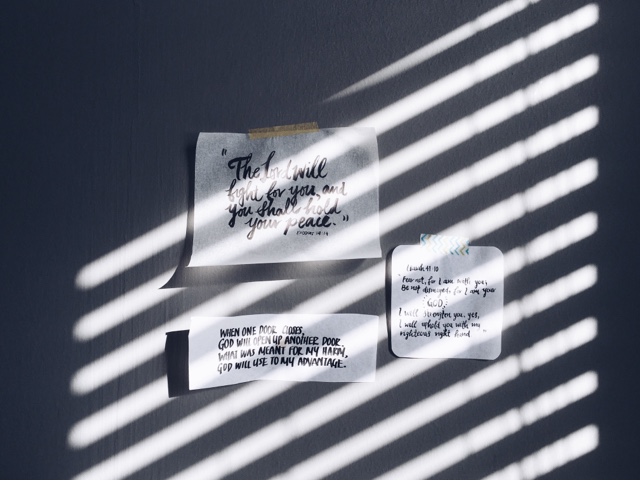 "The Lord will
fight for you, and
you shall hold
your peace."
EXODUS 14:14
Isaiah 41:10
"Fear not, for I am with you;
Be not dismayed, for I am your
GOD;
I will strengthen you, yes,
I will uphold you with my
righteous right hand."
WHEN ONE DOOR CLOSES,
GOD WILL OPEN UP ANOTHER DOOR,
WHAT WAS MEANT FOR MY HARM,
GOD WILL USE TO MY ADVANTAGE.